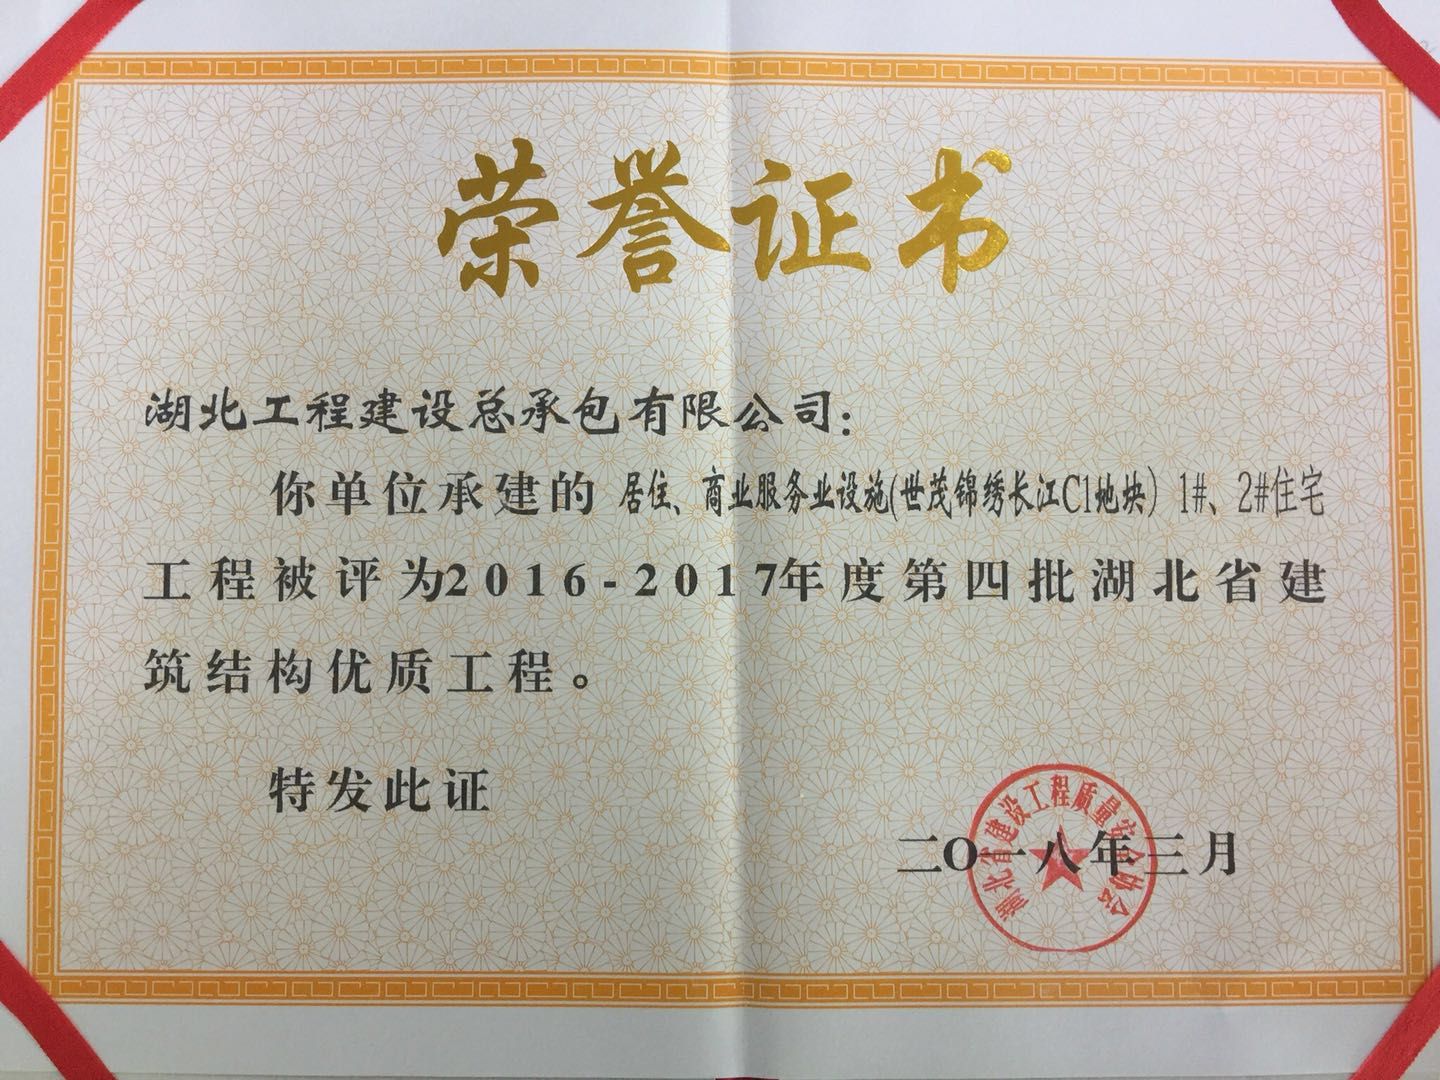 荣誉证书
湖北工程建设总承包有限公司：
你单位承建的 居住、商业服务业设施(世茂锦绣长江C1地块) 1#、2#住宅
工程被评为2016-2017年度第四批湖北省建
筑结构优质工程。
特发此证
二〇一八年三月
湖北省建设工程质量安全协会